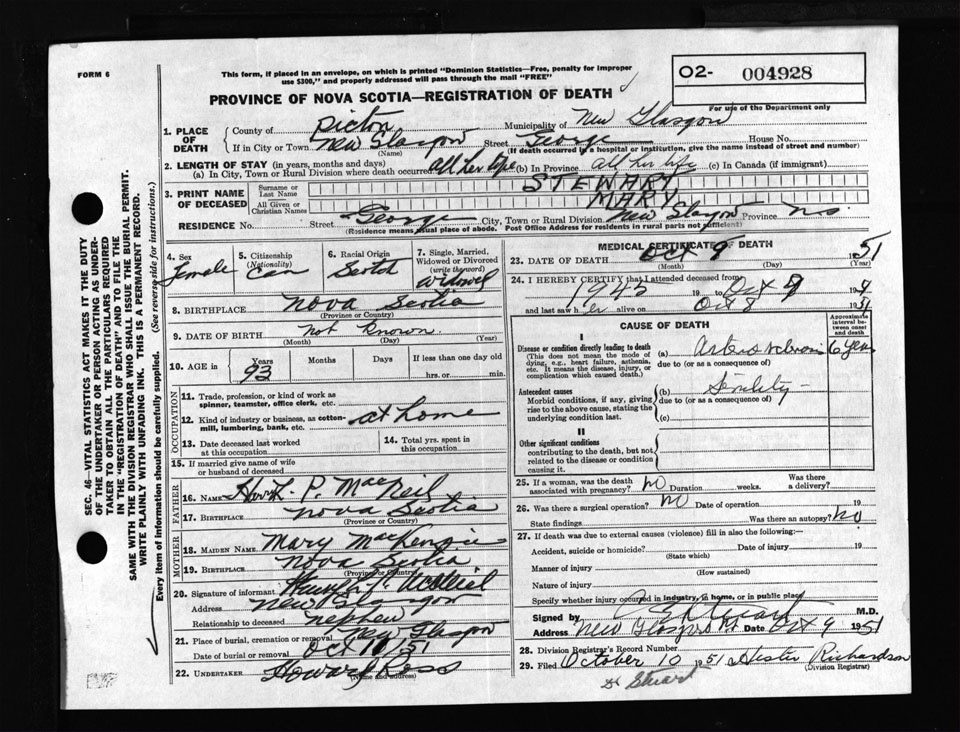 FORM 6
This form, if placed in an envelope, on which is printed "Dominion Statistics—Free, penalty for improper
use $300," and properly addressed will pass through the mail "FREE"
O2- 004928
For use of the Department only
PROVINCE OF NOVA SCOTIA—REGISTRATION OF DEATH
1. PLACE OF DEATH
County of Pictou Municipality of New Glasgow
If in City or Town New Glasgow (Name) Street George House No.
(If death occurred in a hospital or institution, give the name instead of street and number)
2. LENGTH OF STAY (in years, months and days)
(a) In City, Town or Rural Division where death occurred all her life (b) In Province all her life (c) In Canada (if immigrant)
3. PRINT NAME OF DECEASED
Surname or Last Name STEWART
All Given or Christian Names MARY
RESIDENCE No. Street George City, Town or Rural Division New Glasgow Province N.S.
(Residence means usual place of abode. Post Office Address for residents in rural parts not sufficient)
4. Sex Female
5. Citizenship (Nationality) Can
6. Racial Origin Scotch
7. Single, Married, Widowed or Divorced (write the word) Widowed
8. BIRTHPLACE Nova Scotia
(Province or Country)
9. DATE OF BIRTH not known
(Month) (Day) (Year)
10. AGE in Years 93 Months Days If less than one day old
hrs. or min.
OCCUPATION
11. Trade, profession, or kind of work as
spinner, teamster, office clerk, etc.
12. Kind of industry or business, as cotton-
mill, lumbering, bank, etc. at home
13. Date deceased last worked
at this occupation
14. Total yrs. spent in
this occupation
15. If married give name of wife
or husband of deceased
FATHER
16. NAME P. MacNeil
17. BIRTHPLACE Nova Scotia
(Province or Country)
MOTHER
18. MAIDEN NAME Mary MacKenzie
19. BIRTHPLACE Nova Scotia
(Province or Country)
20. Signature of informant
Address New Glasgow
Relationship to deceased nephew
21. Place of burial, cremation or removal New Glasgow
Date of burial or removal Oct 10/51
22. UNDERTAKER Howard Ross
(Name and Address)
MEDICAL CERTIFICATE OF DEATH
23. DATE OF DEATH Oct 9 1951
(Month) (Day) (Year)
24. I HEREBY CERTIFY that I attended deceased from
1945 19 to Oct 19
and last saw her alive on Oct 8 1951
CAUSE OF DEATH
Approximate interval between onset and death
I
Disease or condition directly leading to death
(This does not mean the mode of
dying, e.g., heart failure, asthenia,
etc. It means the disease, injury, or
complication which caused death.)
(a) Arteriosclerosis 6 years
due to (or as a consequence of)
Antecedent causes
Morbid conditions, if any, giving
rise to the above cause, stating the
underlying condition last.
(b) Senility
due to (or as a consequence of)
(c)
II
Other significant conditions
contributing to the death, but not
related to the disease or condition
causing it.
25. If a woman, was the death
associated with pregnancy? No Duration weeks. Was there
a delivery?
26. Was there a surgical operation? No Date of operation 19
State findings Was there an autopsy? No
27. If death was due to external causes (violence) fill in also the following:—
Accident, suicide or homicide? Date of injury 19
(State which)
Manner of injury
(How sustained)
Nature of injury
Specify whether injury occurred in industry, in home, or in public place
Signed by M.D.
Address New Glasgow Date Oct 9 1951
28. Division Registrar's Record Number
29. Filed October 10 1951 Hester Richardson
(Division Registrar)
Dr Stuart
SEC. 46—VITAL STATISTICS ACT MAKES IT THE DUTY
OF THE UNDERTAKER OR PERSON ACTING AS UNDER-
TAKER TO OBTAIN ALL THE PARTICULARS REQUIRED
IN THE "REGISTRATION OF DEATH" AND TO FILE THE
SAME WITH THE DIVISION REGISTRAR WHO SHALL ISSUE THE BURIAL PERMIT.
WRITE PLAINLY WITH UNFADING INK. THIS IS A PERMANENT RECORD.
Every item of information should be carefully supplied. (See reverse side for instructions.)